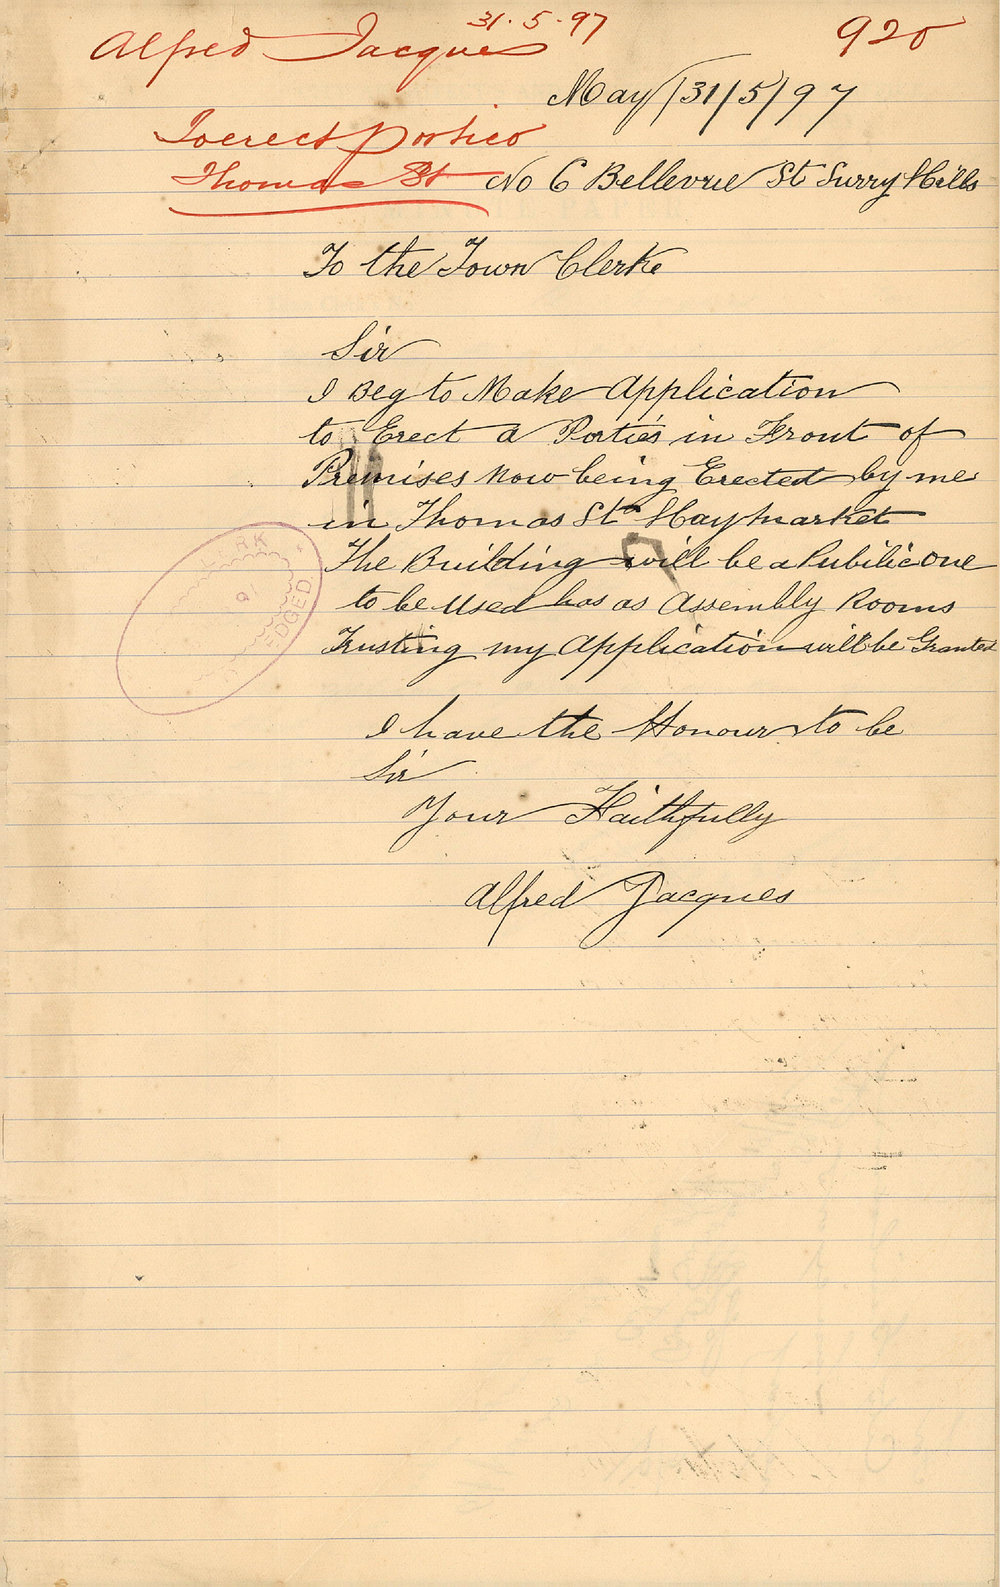 31.5.97
Alfred Jacques 920
May/31/5/97
To erect portico
Thomas St No 6 Bellevue St Surry Hills
To the Town Clerke
Sir
I Beg to Make Application
to Erect a Porties in Front of
Premises now being Erected by me
in Thomas St Haymarket
The Building will be a Pubilic One
to be Used has as Assembly Rooms
Trusting my Application will be Granted
I have the Honour to be
Sir
Your Faithfully
Alfred Jacques